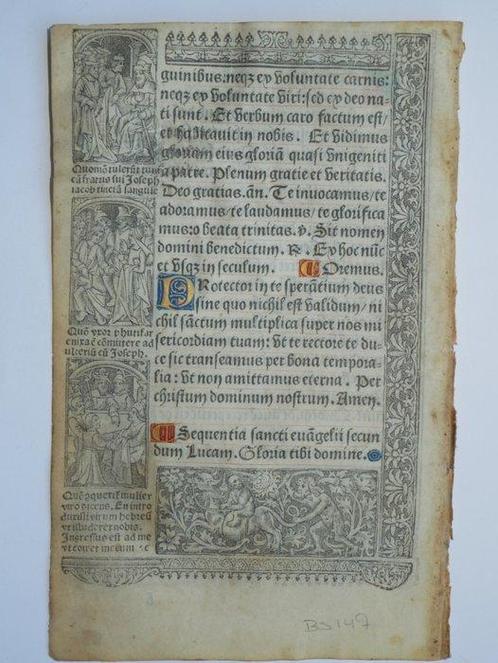 guinibus: neqz ex voluntate carnis:
neqz ex voluntate viri: sed ex deo na-
ti sunt. Et verbum caro factum est/
et habitauit in nobis. Et vidimus
gloriam eius gloriā quasi vnigeniti
a patre. Plenum gratie et veritatis.
Deo gratias. añ. Te inuocamus/te
adoramus/te laudamus/te glorifica
mus: o beata trinitas. v. Sit nomen
domini benedictum. R. Ex hoc nūc
et vsqz in seculum. Oremus.
Protector in te sperātium deus
sine quo nichil est validum/ni
chil sāctum multiplica super nos mi
sericordiam tuam: vt te rectore te du-
ce sic transeamus per bona tempora-
lia: vt non amittamus eterna. Per
christum dominum nostrum. Amen.
Sequentia sancti euāgelii secun
dum Lucam. Gloria tibi domine.
fratres sui Joseph
iacob tinctā sanguīe
Quō vxor phutifar
adulteriū cū Joseph.
mulier
viro dicens. En intro
virum hebreū
vt illuderet nobis.
Ingressus est ad me
vt coiret mecum
BS 147